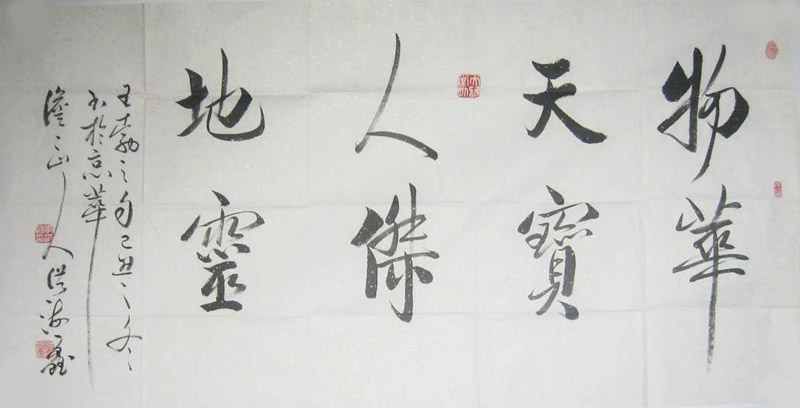 物華
天寶
人傑
地靈
王勃之句己丑之冬
書於京華